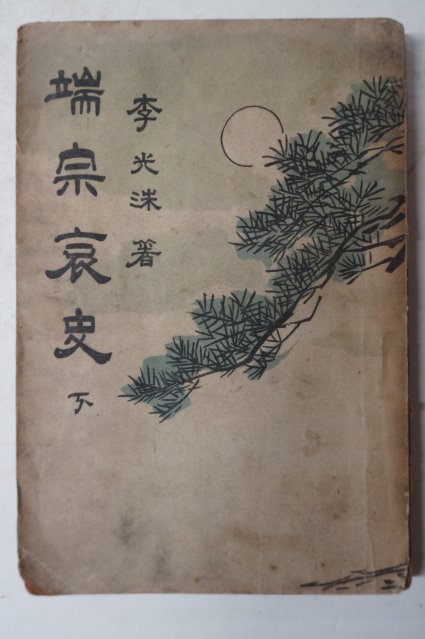 端宗哀史 下
李光洙 著